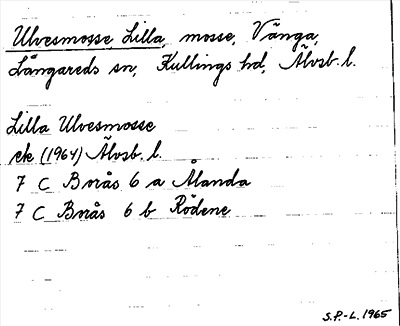 Ulvesmosse, Lilla, mosse, Vånga,
Långareds sn, Kullings hd, Älvsb. l.
Lilla Ulvesmosse
ek (1964) Älvsb. l.
7 C Borås 6 a Ålanda
7 C Borås 6 b Rödene
S.P.-L. 1965